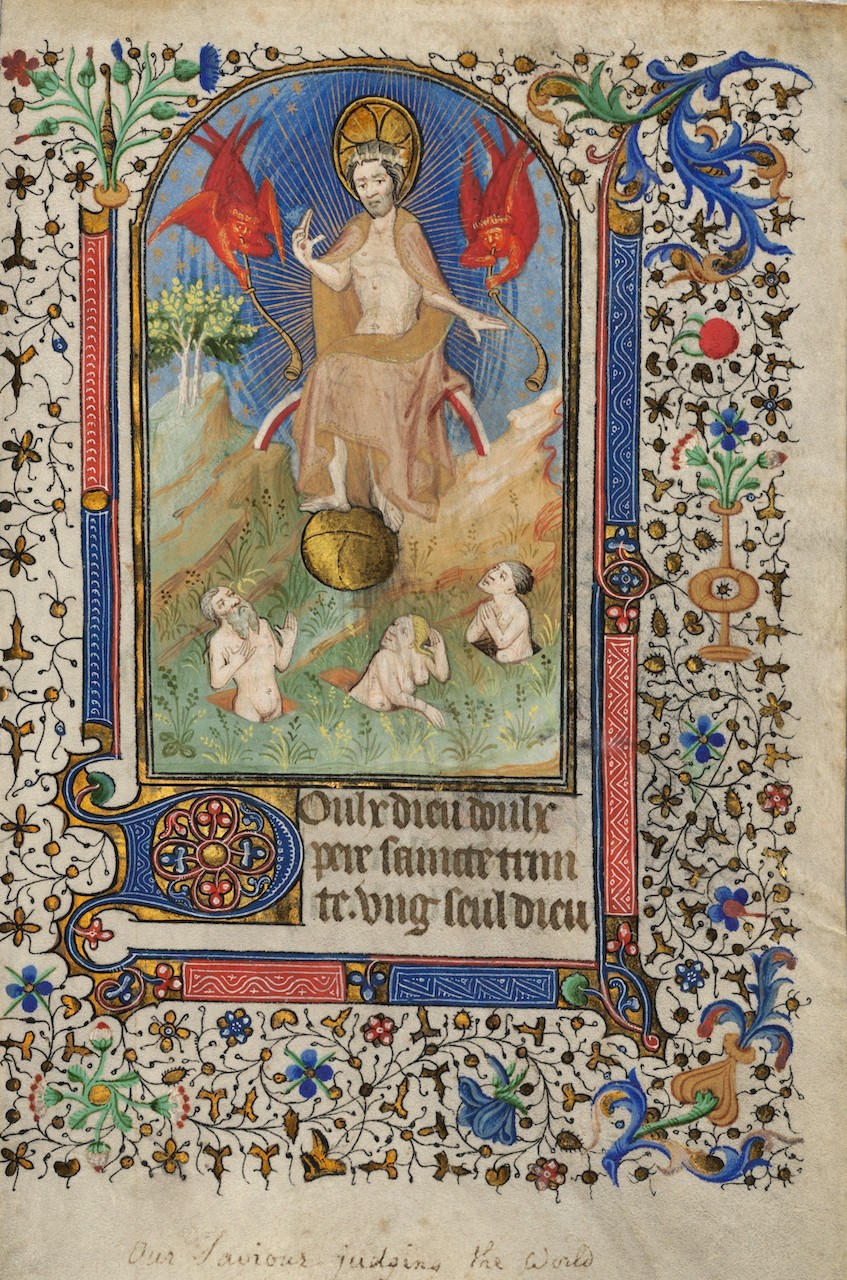 DOulx dieu doulx
pere saincte trini
te. Vng seul dieu
Our Saviour judging the World